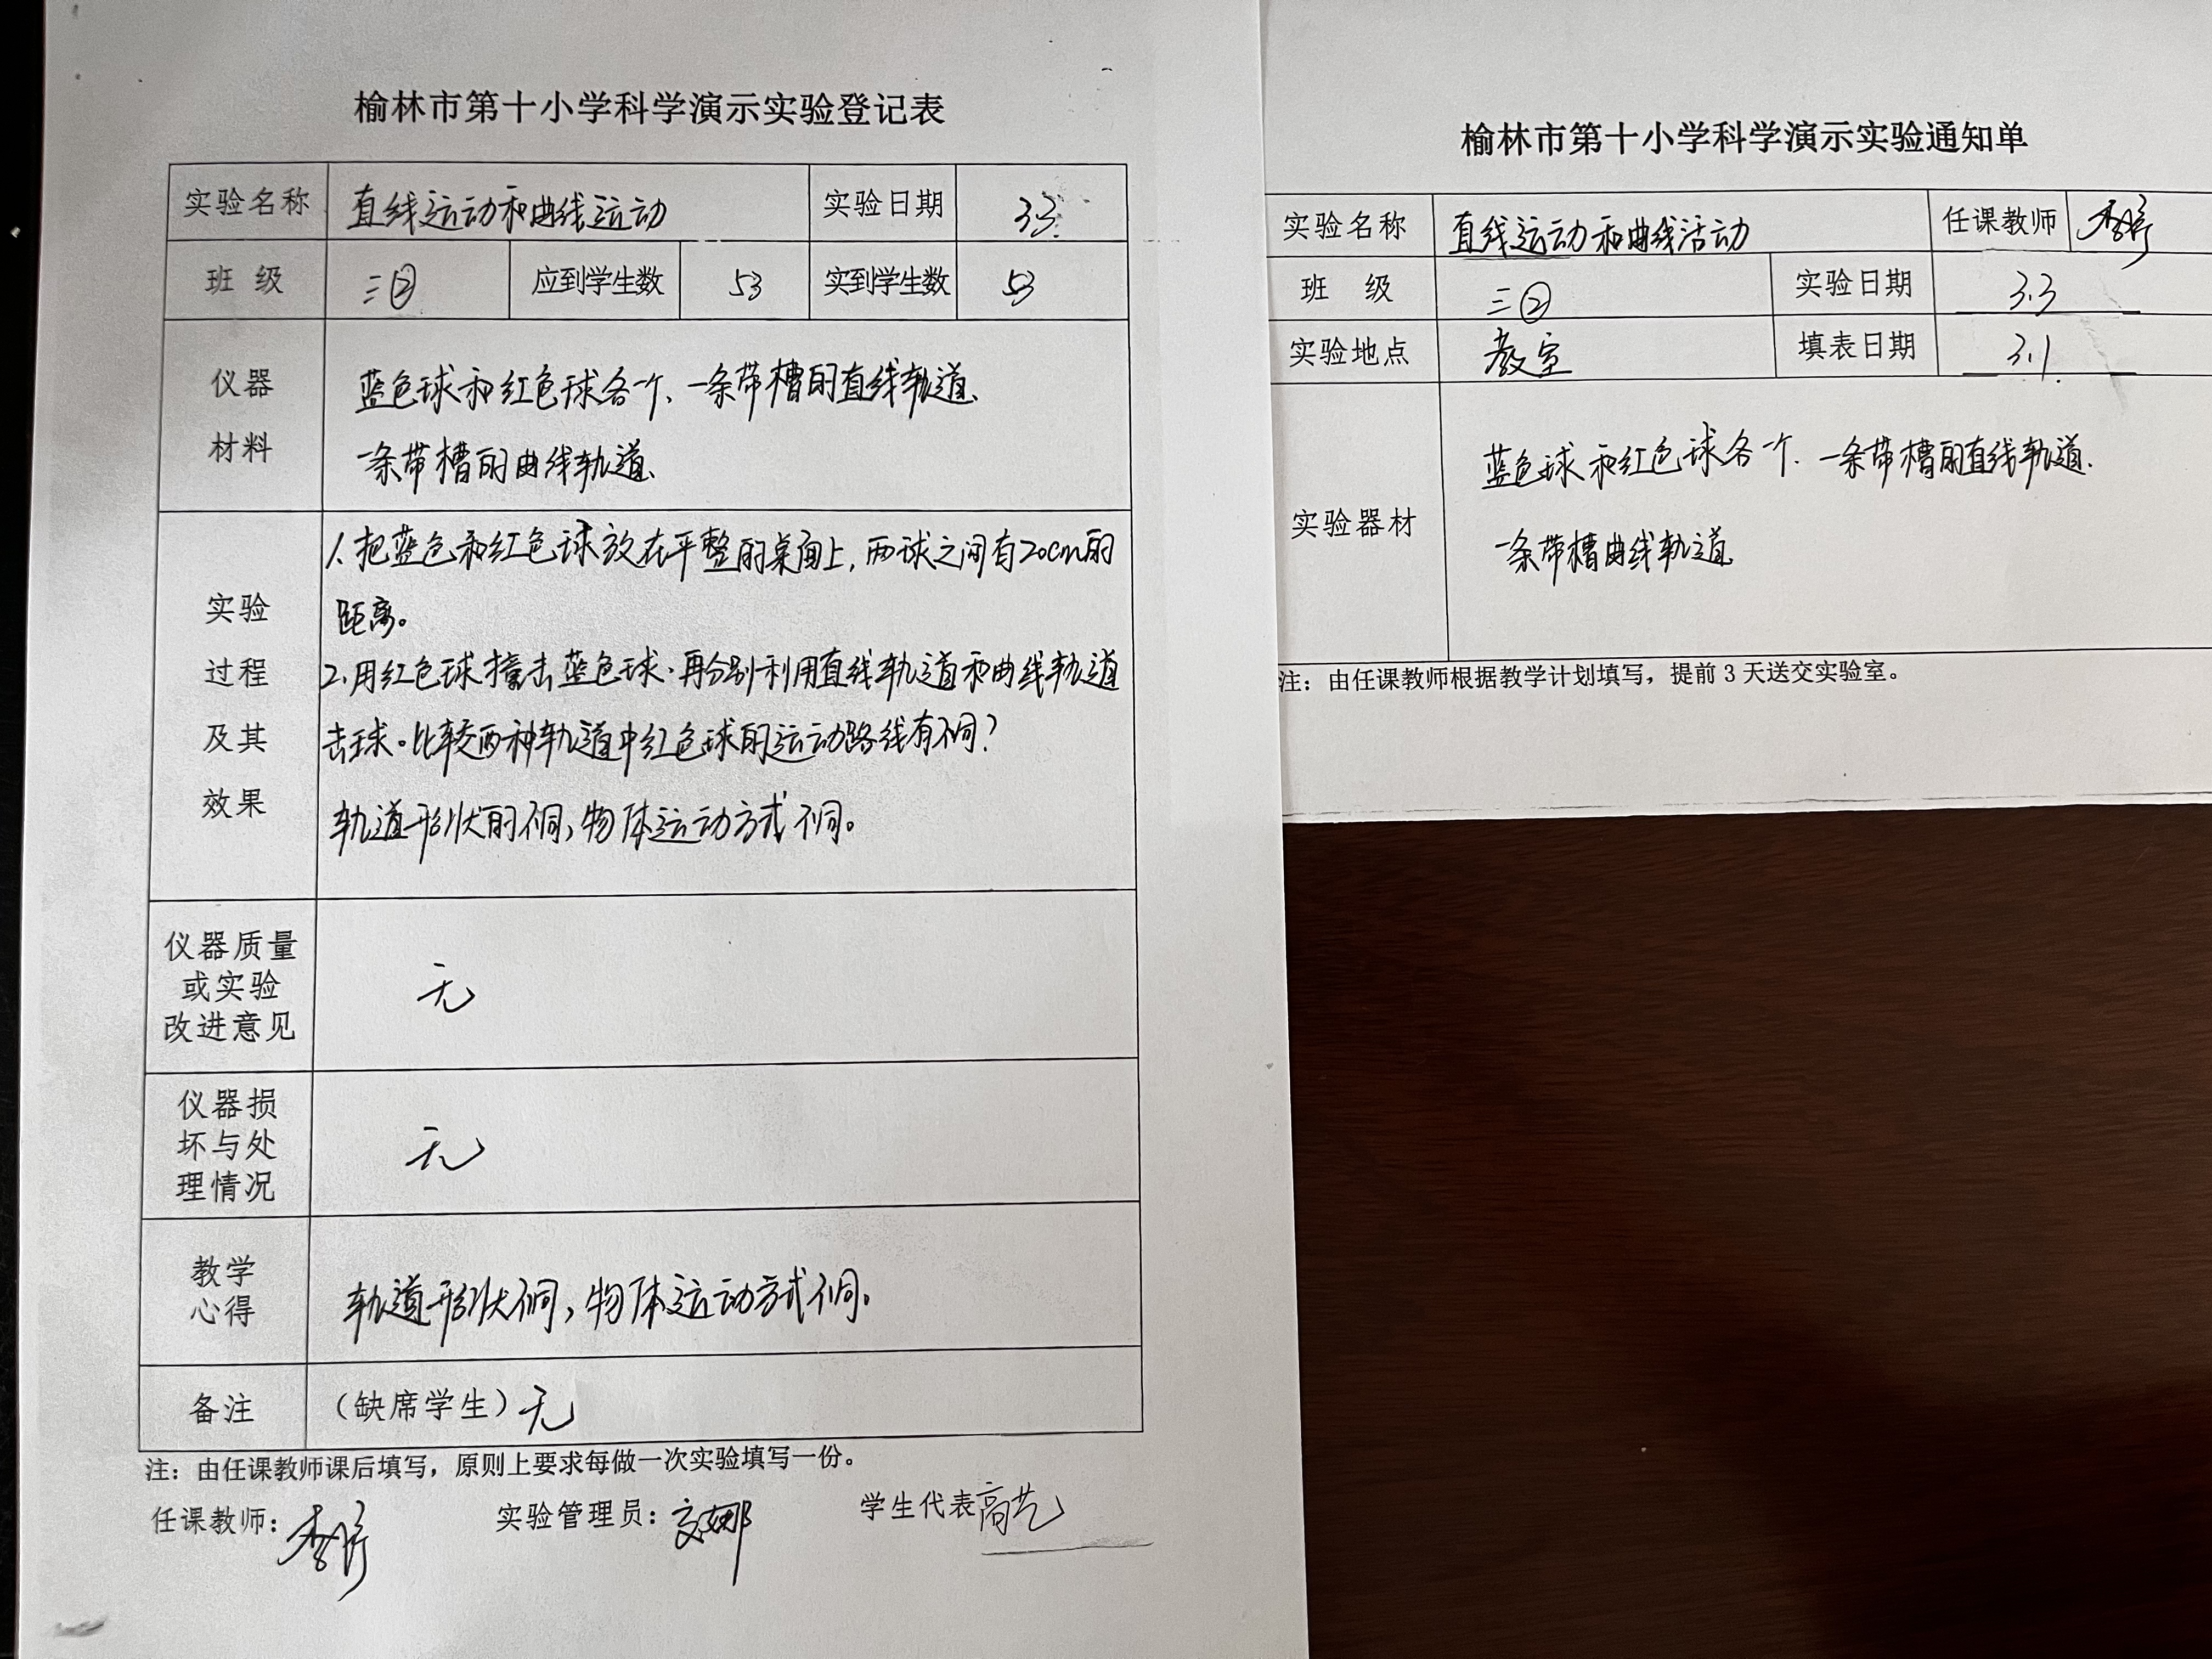 榆林市第十小学科学演示实验登记表
实验名称 直线运动和曲线运动 实验日期 3.3
班 级 三② 应到学生数 53 实到学生数 53
仪器
材料
蓝色球和红色球各一个、一条带槽的直线轨道、
一条带槽的曲线轨道、
实验
过程
及其
效果
1、把蓝色和红色球放在平整的桌面上，两球之间有20cm的
距离。
2、用红色球撞击蓝色球.再分别利用直线轨道和曲线轨道
击球。比较两种轨道中红色球的运动路线有不同？
轨道形状的不同，物体运动方式不同。
仪器质量
或实验
改进意见
无
仪器损
坏与处
理情况
无
教学
心得
轨道形状不同，物体运动方式不同。
备注 （缺席学生）无
注：由任课教师课后填写，原则上要求每做一次实验填写一份。
任课教师： 实验管理员： 学生代表 高艺
榆林市第十小学科学演示实验通知单
实验名称 直线运动和曲线活动 任课教师
班 级 三② 实验日期 3.3
实验地点 教室 填表日期 3.1
实验器材
蓝色球和红色球各一个、一条带槽的直线轨道.
一条带槽曲线轨道
注：由任课教师根据教学计划填写，提前 3 天送交实验室。